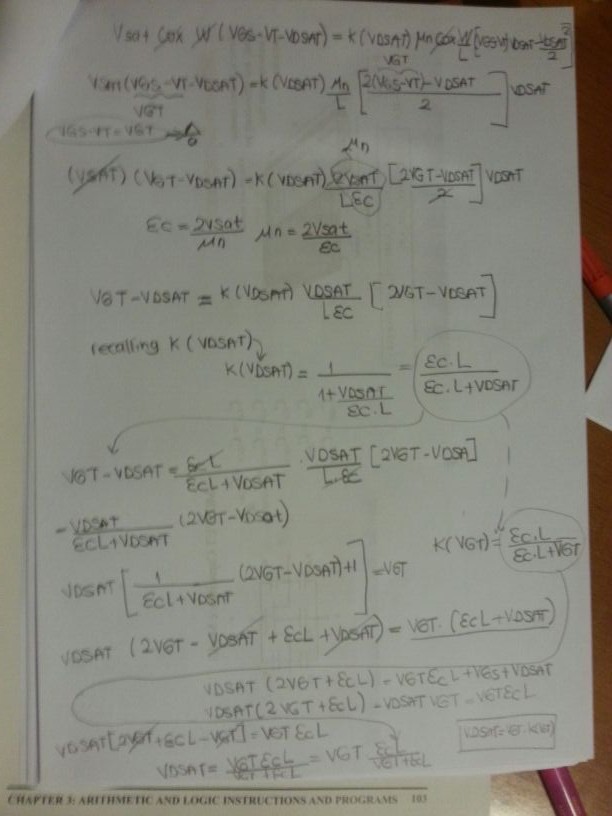 Vsat Cox W (VGS-VT-VDSAT) = K(VDSAT) μn Cox W/L [(VGS-VT)VDSAT - VDSAT²/2]
VGT
Vsat (VGS-VT-VDSAT) = K(VDSAT) μn/L [2(VGS-VT)-VDSAT / 2] VDSAT
VGT
VGS-VT = VGT
μn
(VSAT) (VGT-VDSAT) = K(VDSAT) 2VSAT/LεC [2VGT-VDSAT / 2] VDSAT
εC = 2Vsat/μn μn = 2Vsat/εC
VGT-VDSAT = K(VDSAT) VDSAT/LεC [2VGT-VDSAT]
recalling K(VDSAT)
K(VDSAT) = 1 / (1+VDSAT/εC.L) = εC.L / (εC.L+VDSAT)
VGT-VDSAT = εCL/(εCL+VDSAT) . VDSAT/L.εC [2VGT-VDSA]
= VDSAT/(εCL+VDSAT) (2VGT-VDSat)
K(VGT) = εC.L / (εC.L+VGT)
VDSAT [1/(εCL+VDSAT) (2VGT-VDSAT)+1] = VGT
VDSAT (2VGT - VDSAT + εCL + VDSAT) = VGT. (εCL+VDSAT)
VDSAT (2VGT+εCL) = VGTεCL+VGS+VDSAT
VDSAT(2VGT+εCL) - VDSAT VGT = VGTεCL
VDSAT[2VGT+εCL-VGT] = VGT εCL
VDSAT = VGT εCL / (VGT+εCL) = VGT εCL/(VGT+εCL)
VDSAT=VGT.K(VGT)
CHAPTER 3: ARITHMETIC AND LOGIC INSTRUCTIONS AND PROGRAMS 103